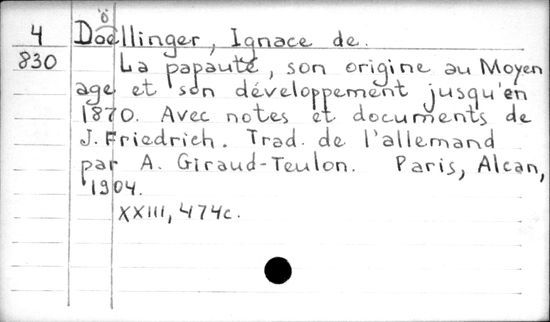 4 Doellinger, Ignace de.
ö
830 La papauté, son origine au Moyen
age et son développement jusqu'en
1870. Avec notes et documents de
J. Friedrich. Trad. de l'allemand
par A. Giraud-Teulon. Paris, Alcan,
1904.
XXIII, 474c.